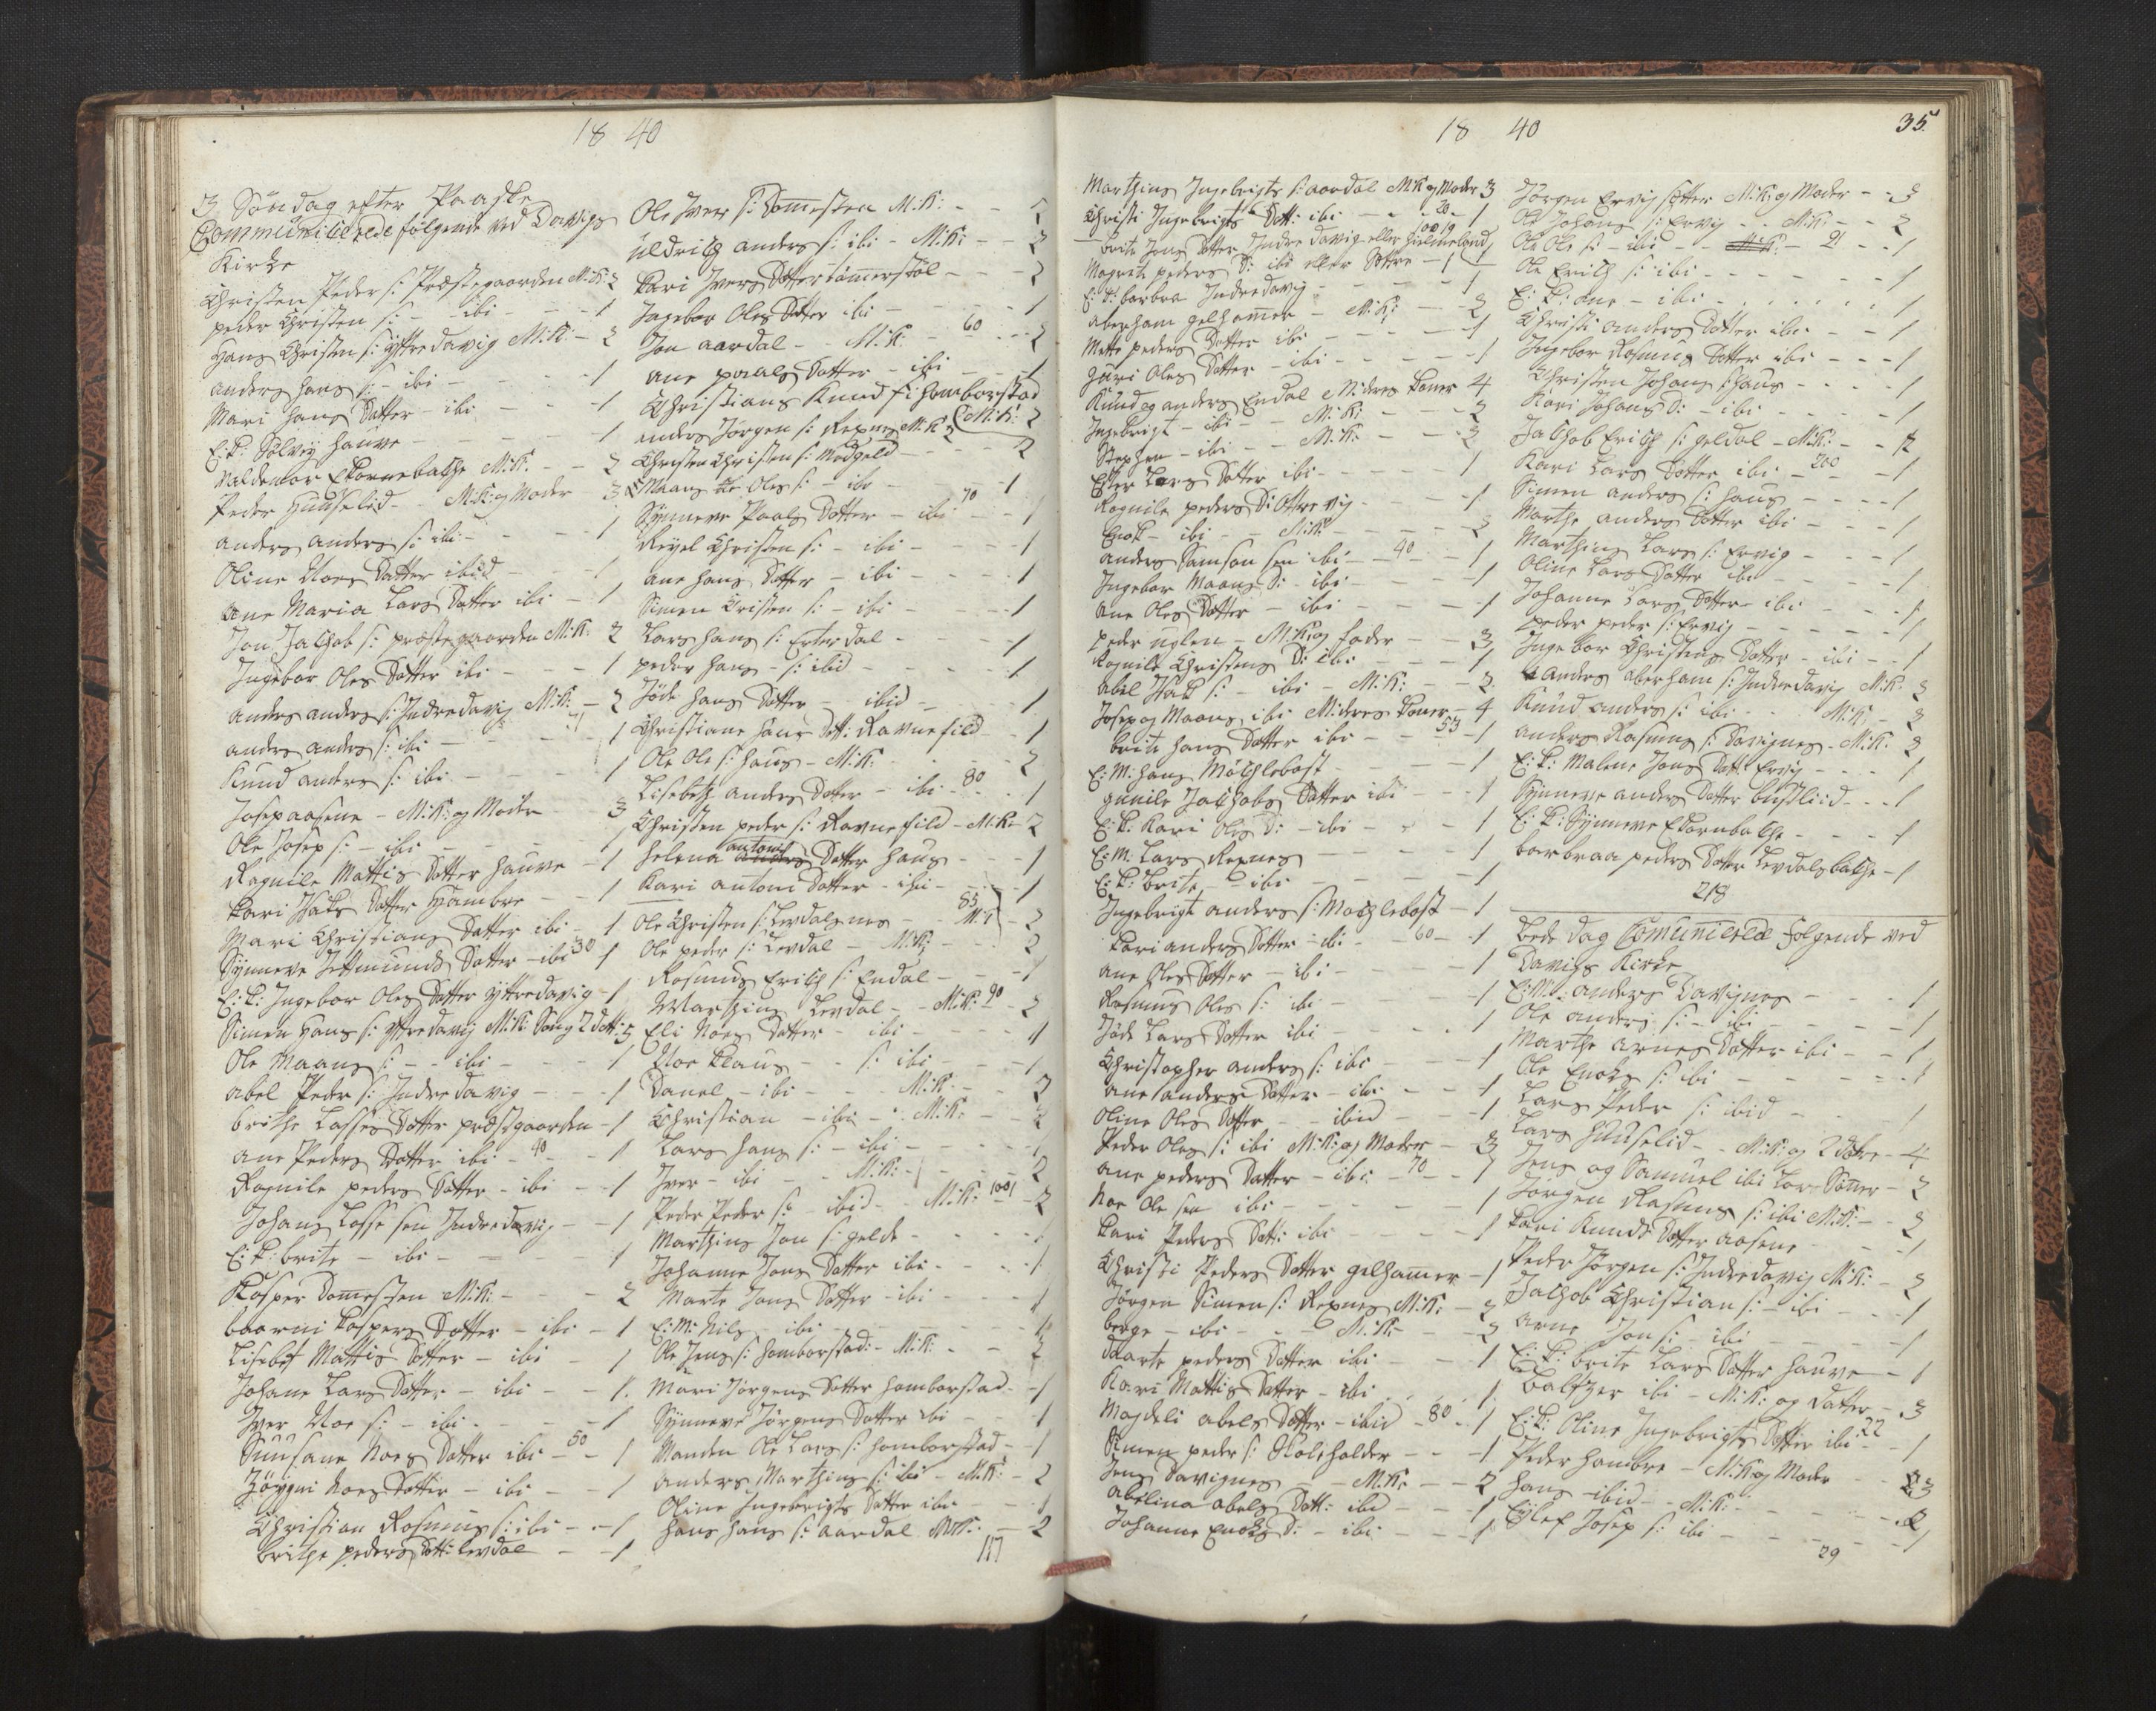 18 40
3 Söndag efter Paaske
Communicerede følgende ved Davigs
Kirke
Christen Peder s: Præstegaarden M:K: 2
peder Christen s: - ibi - - - 1
Hans Christen s: Yttredavig M:K: - 2
anders hans s: - ibi - - - 1
Mari hans Datter - ibi - - - 1
E:K: Sølvig Hauve - - - 1
Valdemar Ekornebakke M:K: - - 2
Peder Huuselid - - M:K: og Moder 3
anders anders s: ibi - - - 1
Oline Noes Datter ibid - - 1
Ane Maria Lars Datter ibi - 1
Jon Jakhob s: præstegaarden M:K: 2
Ingebor Oles Datter ibi - - - 1
anders anders s: Indredavig M:K: - 2
anders anders s: ibi - - - 1
Knud anders s: ibi - - - 1
Josep aasene - M:K: og Moder 3
Ole Josep s: - ibi - - - 1
Ragnile Mattis Datter Hauve - 1
Kari Isaks Datter Hambre - - 1
Mari Christians Datter ibi - 1
Synneve Jettmunds Datter - ibi 30 1
E:K: Ingebor Oles Datter Yttredavig - 1
Simen Hans s: Yttredavig M:K: Søn og 2 dett: 5
Ole Maans s: - - ibi - - - 1
abel Peder s: Indredavig - - - 1
brithe Lasses Datter præstgaarden - 1
Ane Peders Datter ibi - 40 - 1
Ragnile peders Datter - ibi - - 1
Johans Lasse sen Indredavig - - 1
E:K: brite - ibi - - - 1
Kasper Domesten M:K: - - - 2
baarni Kaspers Datter - ibi - 1
Lisebet Mattis Datter - ibi - 1
Johane Lars Datter - ibi - - 1
Iver Noe s: - ibi - - - 1
Suusane Noes Datter ibi - 50 - 1
Jörgni Noes Datter - ibi - - 1
Christian Rasmus s: ibi - - 1
brithe peders Datt: Levdal - - 1
Ole Iver s: Domesten M:K: - - 2
Uldrich anders s: ibi - M:K: - - 2
Kari Ivers Datter Tömmerstöl - - - 2
Ingebor Oles Datter ibi - - - 1
Jon aardal - - M:K: - 60 - - 2
Ane paals Datter - ibi - - - 1
Christians Knud s: Homborstad
(M:K: 2
anders Jorgen s: Rexnes M:K: 2
Christen Christen s: Mødgeld - - - 2
Maans Oles s: - ibi - - 1
Synneve Paals Datter - ibi 70 - 1
Reyel Christen s: - ibi - - - 1
Ane hans Datter - ibi - - - 1
Simen Cristen s: - ibi - - - 1
Lars hans s: Endal - - - 1
peder hans - s: ibid - - - 1
Jøde hans Datter - ibid - - 1
Christiane hans Datt: Ravnefild - 1
Ole Ole s: Haus - M:K: - - - 2
Lisebeth anders Datter - ibi - 80 - 1
Christen peder s: Ravnefild - M:K: 2
antoni
Helena anders Datter Haus - - 1
Kari antoni Datter - ibi - - 1
Ole Christen s: Levdalsnes - 85 M:K - 2
Ole peder s: Levdal - M:K: - - 2
Rasmus Erich s: Endal - - - 1
Marthinus Levdal - - M:K: 90 - 2
Eli Noes Datter - ibi - - - 1
Noe Klaus - - s: ibi - - - 1
Danel - ibi - - M:K: - - 2
Christian - ibi - - M:K: - - 2
Lars hans s: - ibi - - - 1
Iver - ibi - - M:K: - - - 2
Peder Peder s: - ibid - - M:K: 100 - 2
Marthins Jon s: gelde - - - - 1
Johanne Jons Datter ibi - - - 1
Marte Jons Datter - ibi - - - 1
E:M: Nils - ibi - - - 1
Ole Jens s: Homborstad: - M:K: - - 2
Mari Jørgens Datter Homborstad - 1
Synneve Jørgens Datter ibi - - 1
Manden Ole Lars s: Homborstad - - 1
anders Marthins s: ibi - M:K: - 2
Oline Ingebrigts Datter ibi - - - 1
Hans hans s: aardal M:K: - - 2
117
18 40
35
Marthins Ingebrigts s: aardal M:K og Moder 3
Christi Ingebrigts Datt: ibi - - 20 - 1
brite Jens Datter Indre davig eller Hielmeland
Magrete peders D: ibi eller Datter - 1
E:K: barbra Indredavig - - - 1
aberham gelhamer - M:K: - - 2
Mette peders Datter ibi - - - 1
guri Oles Datter - ibi - - - 1
Knud og anders Endal M: deres koner 4
Ingebrigt - ibi - - M:K: - - - 2
Stephen - ibi - - M:K: - - - 2
Ester Lars Datter ibi - - - 1
Ragnile peders D: Ottrevig - - - 1
Enok - ibi - - M:K: - - - 2
anders Samson sen ibi - 40 - 1
Ingebor Maans D: ibi - - - 1
Ane Oles Datter - ibi - - - 1
peder uglen - M:K: og fader - - 3
Ragnile Christens D: ibi - - - 1
abel Isak s: - ibi - M:K: - - 2
Josep og Maans ibi M: deres koner - 4
brite hans Datter ibi - - 53 - 1
E:M: Hans Möchlebost - - - 1
gunile Jakhobs Datter ibi - - - 1
E:K: Kari Oles D: - ibi - - - 1
E:M. Lars Rexnes - - - 1
E:K: brite - ibi - - - 1
Ingebrigt anders s: Möchlebost - 1
Kari anders Datter - ibi - - 60 - 1
Ane Oles Datter - ibi - - - 1
Rasmus Oles s: ibi - - - 1
Jøde Lars Datter ibi - - - 1
Christopher anders s: ibi - - 1
Ane anders Datter - ibi - - 1
Oline Oles Datter - - ibid - - 1
Peder Oles s: ibi M:K: og Moder - - 3
Ane peders Datter - ibi - 70 - - 1
Noe Ole sen ibi - - - 1
Kari Peders Datt: ibi - - - 1
Christi Peders Datter gelhamer - 1
Jørgen Simen s: Rexnes M:K: - 2
berge - ibi - - M:K: - - 2
Daarte peders Datter ibi - - - 1
Kari Mattis Datter - ibi - - - 1
Magdeli abels Datter - ibid - 80 - 1
Simen peder s: Skoleholder - - - 1
Jens Davignes - - M:K: - - 2
abelina abels Datt: ibid - - - 1
Johanne Enoks D: - ibi - - - 1
Jørgen Ervig sætter M:K: og Moder - - 3
Ole Johans s: Ervig - - M:K: - - 2
Ole Ole s: - ibi - - M:K: - 21 - - 1
Ole Erich s: ibi - - - 1
E:K: ane - ibi - - - 1
Christi anders Datter ibi - - 1
Ingebor Rasmus Datter ibi - - - 1
Christen Johans s: Haus - - - 1
Kari Johans D: - ibi - - - 1
Jakhob Erich s: geldal - M:K: - - 2
Kari Lars Datter ibi - 200 - 1
Simen anders s: Haus - - - 1
Marthe anders Datter ibi - - - 1
Marthins Lars s: Ervig - - - 1
Oline Lars Datter ibi - - - 1
Johanne Lars Datter - ibi - - - 1
peder peder s: Ervig - - - 1
Ingebor Christens Datter - ibi - - 1
Anders aberham s: Indredavig M:K: 2
Knud anders s: ibi - - M:K: - 2
anders Rasmus s: Davignes - M:K: 2
E:K: Malene Jons Datt: Ervig - - - 1
Synneve anders Datter Huslid - - - 1
E:K: Synneve Ekornbakke - - - 1
barbraa peders Datter Levdalsbakke - 1
218
Bede dag Comunicerede følgende ved
Davigs Kirke
E:M: anders Davignes - - - 1
Ole anders s: - ibi - - - 1
Marthe arnes Datter ibi - - 1
Ole Enoks s: ibi - - - 1
Lars Peder s: ibid - - - 1
Lars Huuselid - - M:K: og 2 Døtre - 4
Jens og Samuel ibi Lars Sönner - 2
Jörgen Rasmus s: ibi M:K: - - 2
Kari Knuds Datter aasene - - 1
Peder Jörgen s: Indredavig M:K: - 2
Jakhob Christian s: - ibi - - - 1
Arne Jon s: - ibi - - - 1
E:K: brite Lars Datter Hauve - 1
Baltzer ibi - M:K: og Datter - 3
E:K: Oline Ingebrigts Datter ibi - 22 - 1
Peder Hambre - M:K: og Moder - - 3
Hans - ibid - - M:K: - - - 2
Eilef Josep s: ibi - - - 1
29